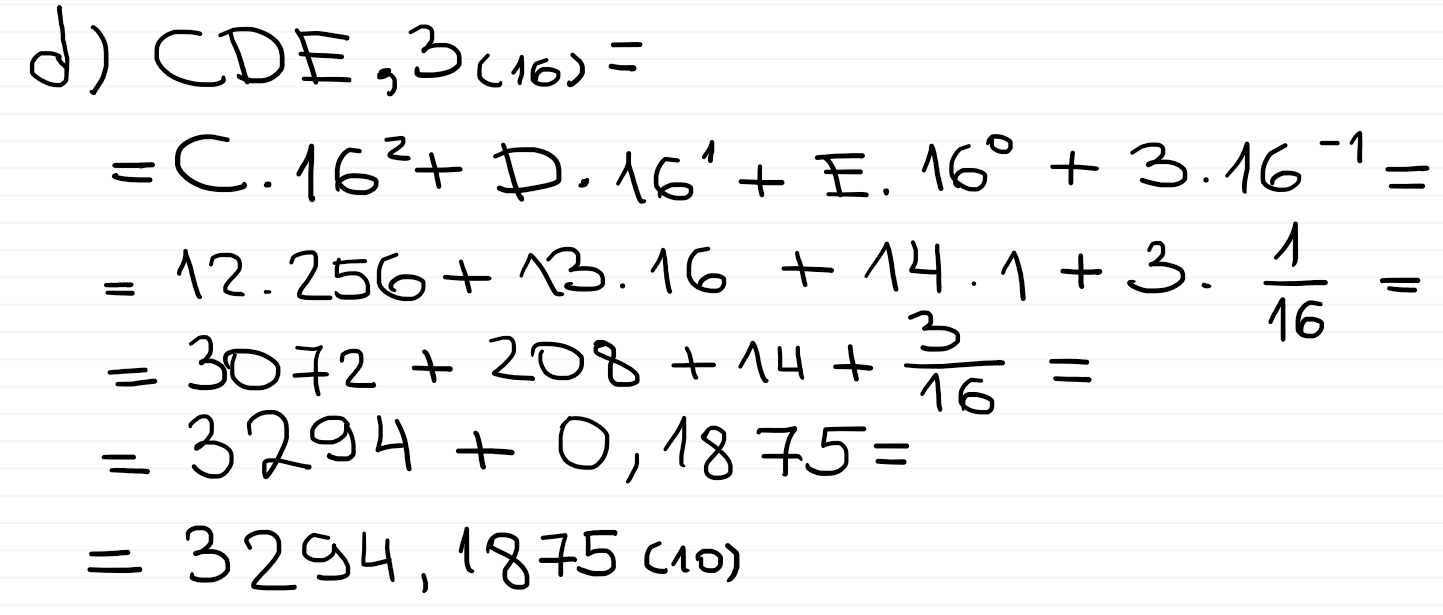 d) CDE,3(16) =
= C.16² + D.16¹ + E.16⁰ + 3.16⁻¹ =
= 12.256 + 13.16 + 14.1 + 3. 1/16 =
= 3072 + 208 + 14 + 3/16 =
= 3294 + 0,1875 =
= 3294,1875(10)